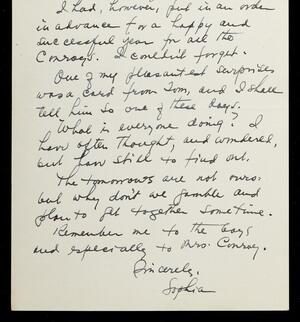 I had, however, put in an order
in advance for a happy and
successful year for all the
Conroys. I couldn't forget.
One of my pleasantest surprises
was a card from Tom, and I shall
tell him so one of these days.
What is everyone doing? I
have often thought, and wondered,
but have still to find out.
The tomorrows are not ours
but why don't we gamble and
plan to get together sometime.
Remember me to the boys
and especially to Mrs. Conroy.
Sincerely,
Sophia